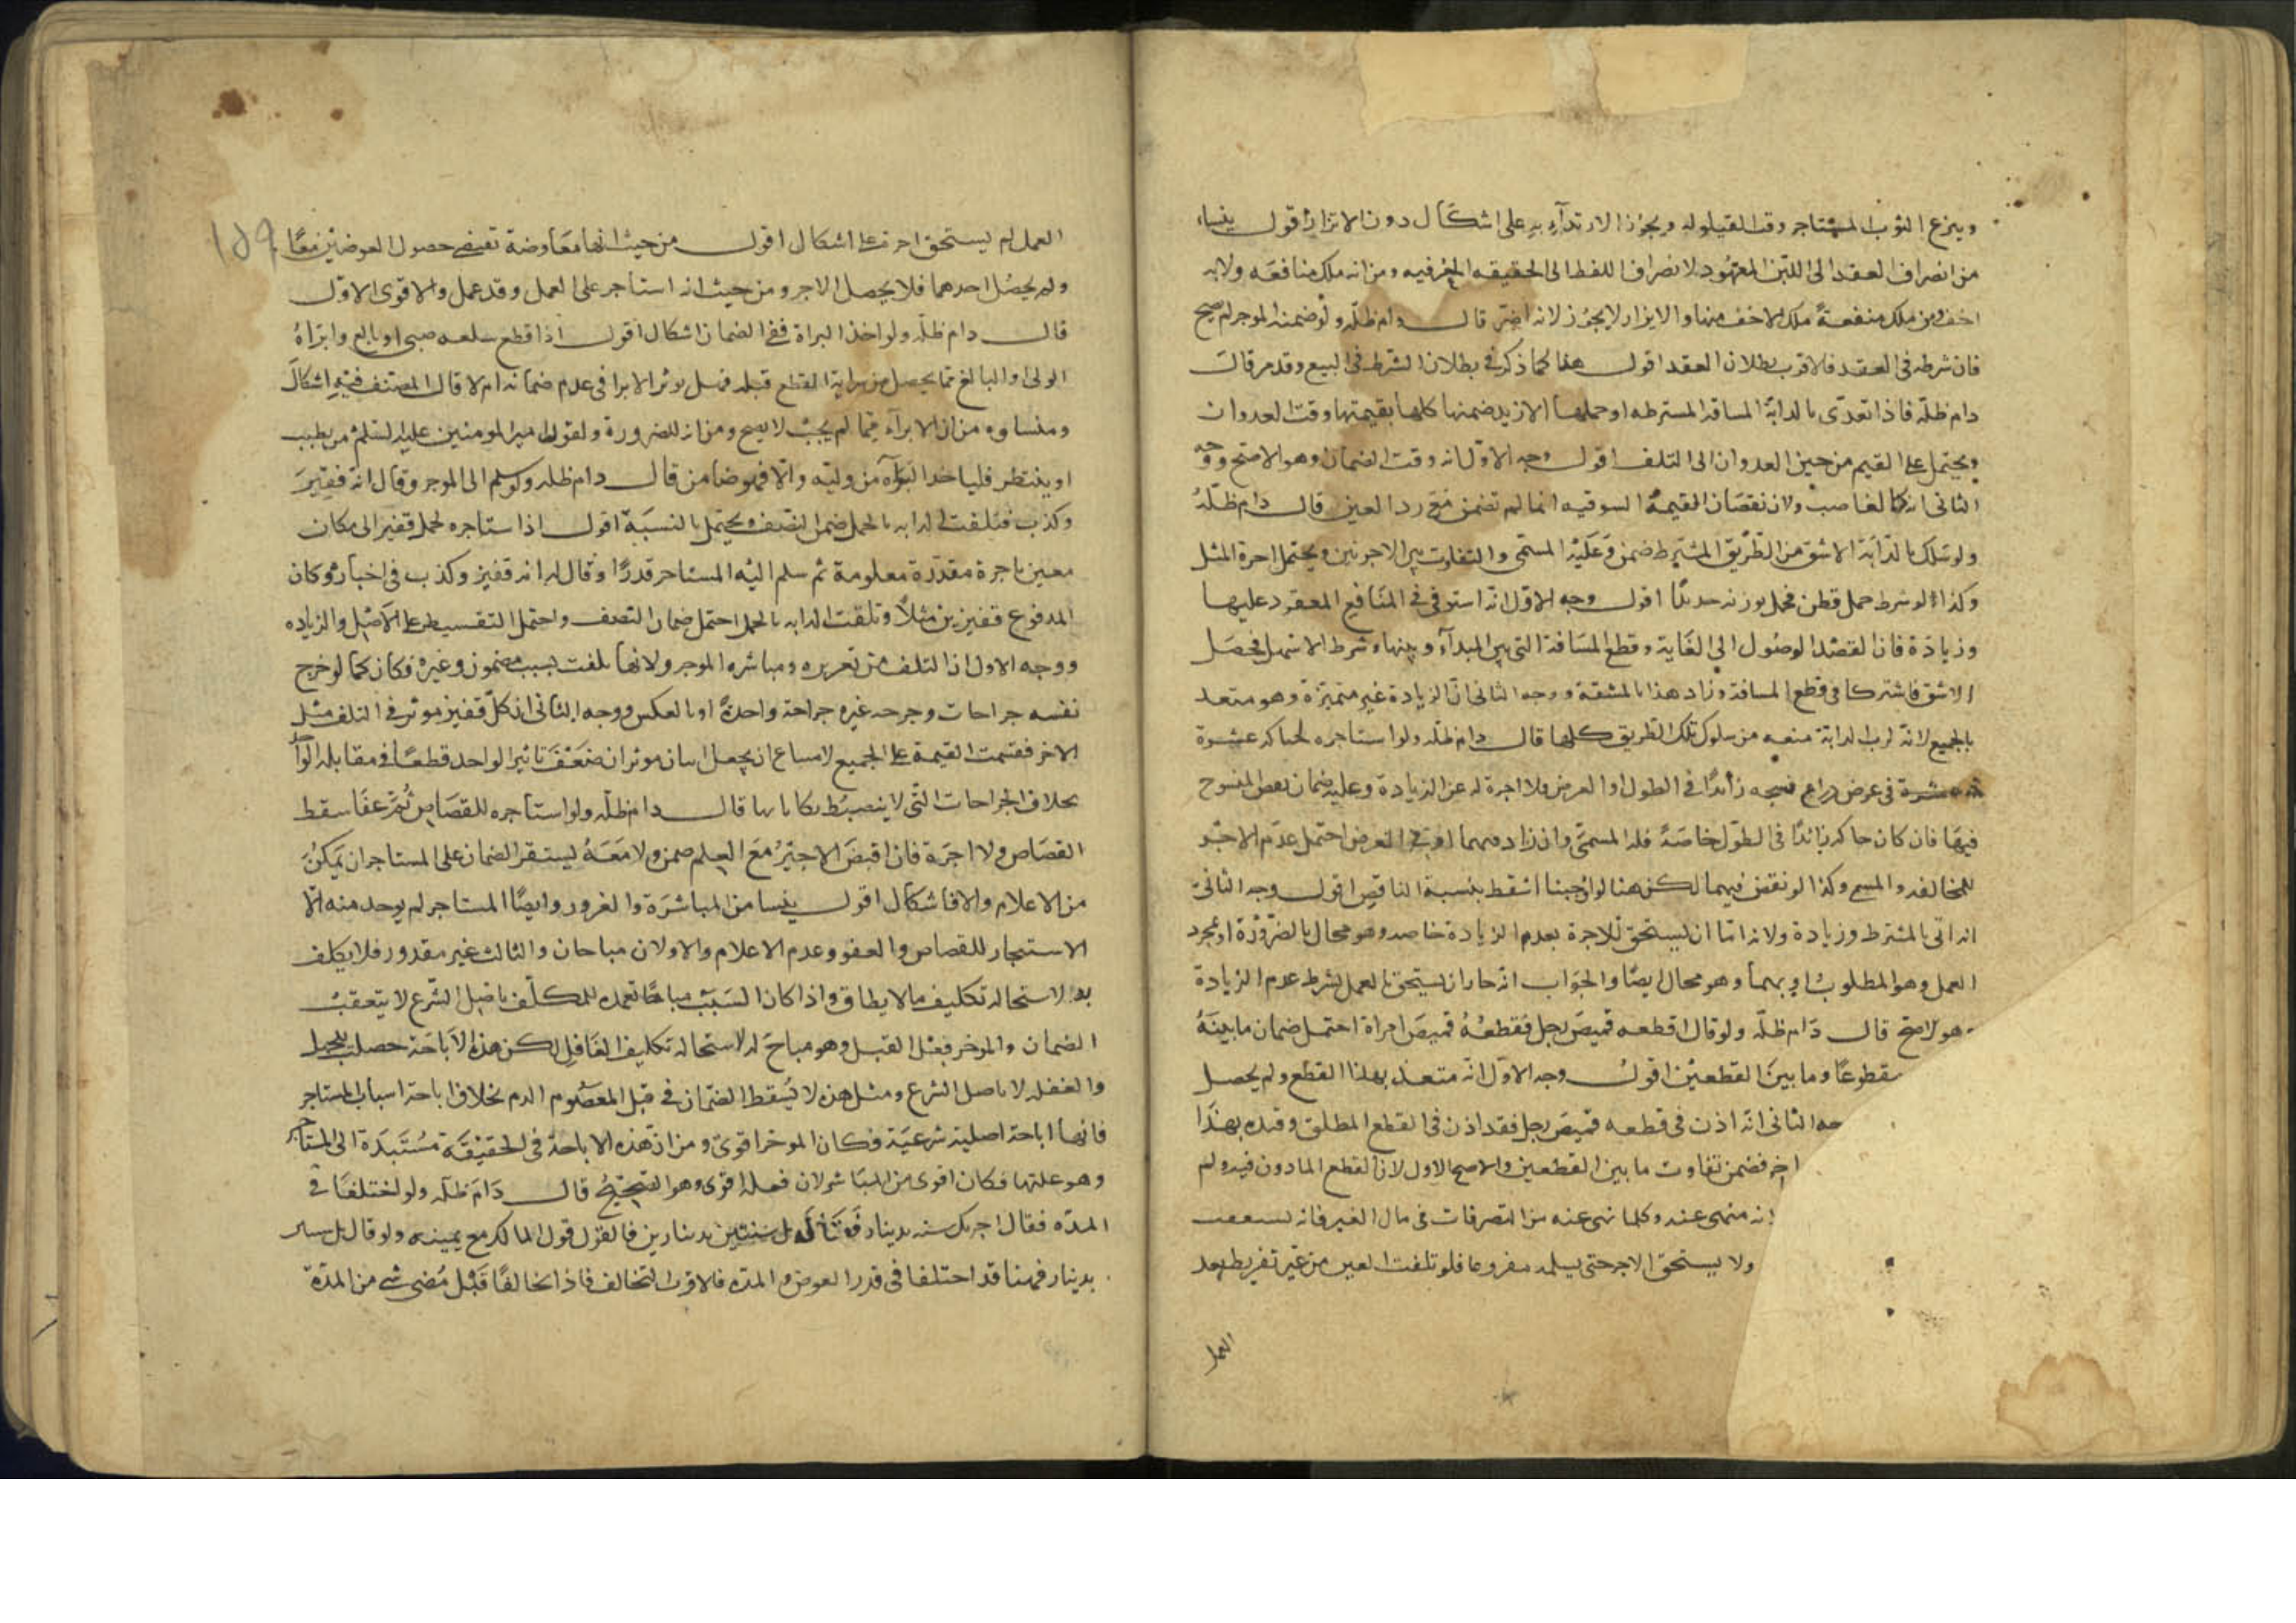 وينزع الثوب المستاجر وقت القيلوله ويجوز الارتدآء به على اشكال دون الاتزار اقول ينشا
من انصراف العقد الى اللبس المعهود لانصراف اللفظ الى الحقيقه العرفيه ومن انه ملك منافعه ولانه
اخف ومن ملك منفعة ملك الاخف منها والاتزار لا يجوز لانه اضر قال دام ظله ولو ضمنه الموجر لم يصح
فان شرطه فى العقد فالاقرب بطلان العقد اقول هذا كما ذكر فى بطلان الشرط فى البيع وقد مر قال
دام ظله فاذا تعدى بالدابة المسافه المشترطه او حملها الازيد ضمنها كلها بقيمتها وقت العدوان
ويحتمل على القيم من حين العدوان الى التلف اقول وجه الاول انه وقت الضمان وهو الاصح ووجه
الثانى انه كالغاصب ولان نقصان القيمة السوقيه انما لم تضمن مع رد العين قال دام ظله
ولو سلك بالدابة الاشق من الطريق المشترط ضمن وعليه المسمى والتفاوت بين الاجرتين ويحتمل اجرة المثل
وكذا لو شرط حمل قطن فحمل بوزنه حديدا اقول وجه الاول انه استوفى المنافع المعقود عليها
وزيادة فان القصد الوصول الى الغاية وقطع المسافة التى بين المبدآء وبينها وشرط الاسهل فحصل
الاشق فاشتركا فى قطع المسافة وزاد هذا بالمشقة ووجه الثانى ان الزيادة غير متميزة وهو متعد
بالجميع لانه لرب الدابة منعه من سلوك تلك الطريق كلها قال دام ظله ولو استاجره لحياكه عشرة
فى عرض ذراع فنسجه زائدا فى الطول او العرض فلا اجرة له عن الزيادة وعليه ضمان نقص المنسوج
فيها فان كان حاكه زائدا فى الطول خاصة فله المسمى وان زاد فيهما او فى العرض احتمل عدم الاجر
للمخالفه والمسمى وكذا لو نقص فيهما لكن هنا لو اوجبنا اسقط بنسبة الناقص اقول وجه الثانى
انه اتى بالمشترط وزيادة ولانه اما ان يستحق الاجرة بعدم الزيادة خاصه وهو محال بالضرورة او بمجرد
العمل وهو المطلوب او بهما وهو محال ايضا والجواب انه جاز ان يستحق بالعمل بشرط عدم الزيادة
وهو الاصح قال دام ظله ولو قال اقطعه قميص رجل فقطعه قميص امراة احتمل ضمان ما بينه
مقطوعا وما بين القطعين اقول وجه الاول انه متعد بهذا القطع ولم يحصل
الثانى انه اذن فى قطعه قميص رجل فقد اذن فى القطع المطلق وقيده بهذا
فضمن تفاوت ما بين القطعين والاصح الاول لان القطع الماذون فيه ولم
انه منهى عنه وكلما نهى عنه من التصرفات فى مال الغير فانه
ولا يستحق الاجر حتى يسلمه مفروغا فلو تلفت العين من غير تفريط بعد
العمل
العمل لم يستحق اجرة على اشكال اقول من حيث انها معاوضة تقتضى حصول العوضين معا
ولم يحصل احدهما فلا يحصل الاجر ومن حيث انه استاجر على العمل وقد عمل والاقوى الاول
قال دام ظله ولو اخذ البراة ففى الضمان اشكال اقول اذا قطع سلعه صبى او بالغ وابراه
الولى او البالغ مما يحصل من سراية القطع قبله فهل يوثر الابرا فى عدم ضمانه ام لا قال المصنف فيه اشكال
ومنشاوه من ان الابرآء مما لم يجب لا يصح ومن انه للضرورة ولقول امير المومنين عليه السلام من تطبب
او تبيطر فلياخذ البرآه من وليه والا فهو ضامن قال دام ظله ولو سلم الى الموجر وقال انه قفيز
وكذب فتلفت الدابه بالحمل ضمن النصف ويحتمل بالنسبة اقول اذا استاجره لحمل قفيز الى مكان
معين باجرة مقدرة معلومة ثم سلم اليه المستاجر قدرا وقال له انه قفيز وكذب فى اخباره وكان
المدفوع قفيزين مثلا وتلفت الدابه بالحمل احتمل ضمان النصف واحتمل التقسيط على الاصل والزياده
ووجه الاول ان التلف من تغريره ومباشره الموجر ولانها تلفت بسبب مضمون وغيره فكان كما لو جرح
نفسه جراحات وجرحه غيره جراحة واحدة او بالعكس ووجه الثانى ان كل قفيز موثر فى التلف مثل
الاخر فقسمت القيمة على الجميع لامتناع ان يجعل اثنان موثران ضعف تاثير الواحد قطعا فى مقابله الواحد
بخلاف الجراحات التى لا ينضبط نكاياتها قال دام ظله ولو استاجره للقصاص ثم عفا سقط
القصاص ولا اجرة فان اقتص الاجير مع العلم ضمن ولا معه يستقر الضمان على المستاجر ان تمكن
من الاعلام والا فاشكال اقول ينشا من المباشرة والغرور وايضا المستاجر لم يوجد منه الا
الاستيجار للقصاص والعفو وعدم الاعلام والاولان مباحان والثالث غير مقدور فلا يكلف
به لاستحاله تكليف ما لا يطاق واذا كان السبب مباحا تعمده للمكلف باصل الشرع لا يتعقب
الضمان والموخر فعل القتل وهو مباح له لاستحالة تكليف الغافل لكن هذه الاباحة حصلت للجهل
والغفله لا باصل الشرع ومثل هذه لا يسقط الضمان فى قتل المعصوم الدم بخلاف اباحة اسباب المستاجر
فانها اباحة اصلية شرعية فكان الموخر اقوى ومن ان هذه الاباحة فى الحقيقة مستندة الى المستاجر
وهو علتها فكان اقوى من المباشر لان فعله اقوى وهو الصحيح قال دام ظله ولو اختلفا فى
المده فقال اجرتك سنه بدينار فقال بل سنتين بدينارين فالقول قول المالك مع يمينه ولو قال بل سنتين
بدينار فهنا قد اختلفا فى قدر العوض والمده فالاقرب التحالف فاذا تحالفا قبل مضى شى من المدة